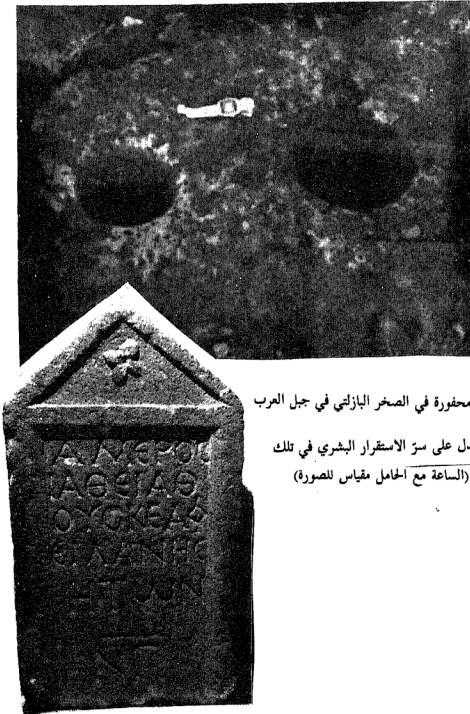 محفورة في الصخر البازلتي في جبل العرب
دل على سرّ الاستقرار البشري في تلك
(الساعة مع الحامل مقياس للصورة)
ΑΜΕΡΟ
ΙΑΘΕΙΑΘ
ΟΥϹΚΕΑϹ
ΛΑΝΗϹ
ΗΤШΝ